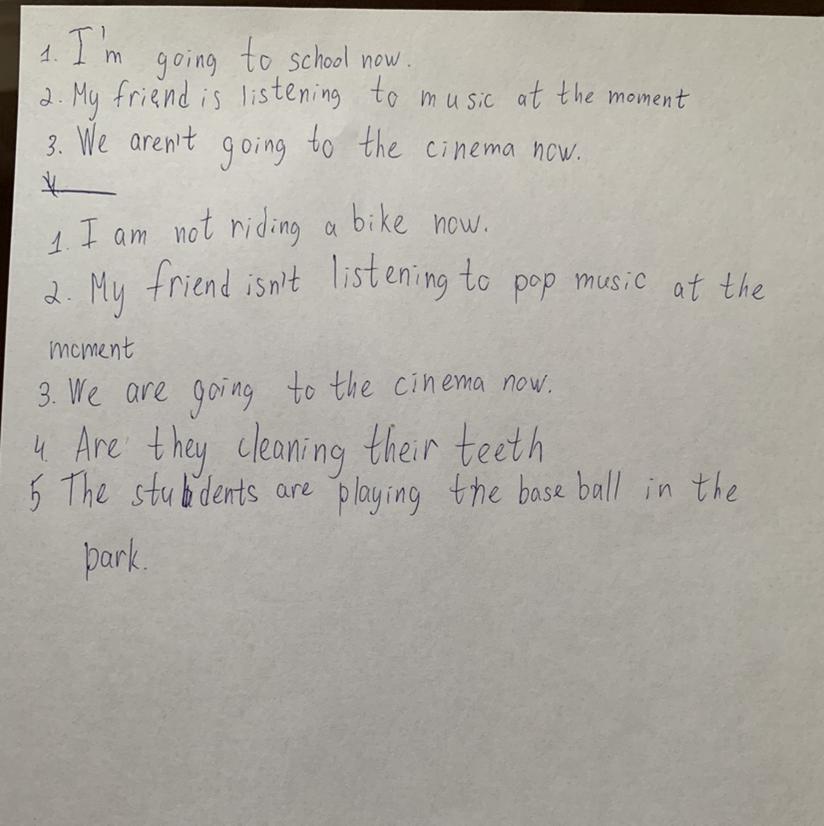 1. I'm going to school now.
2. My friend is listening to music at the moment
3. We aren't going to the cinema now.
1. I am not riding a bike now.
2. My friend isn't listening to pop music at the
moment
3. We are going to the cinema now.
4 Are they cleaning their teeth
5 The students are playing the base ball in the
park.